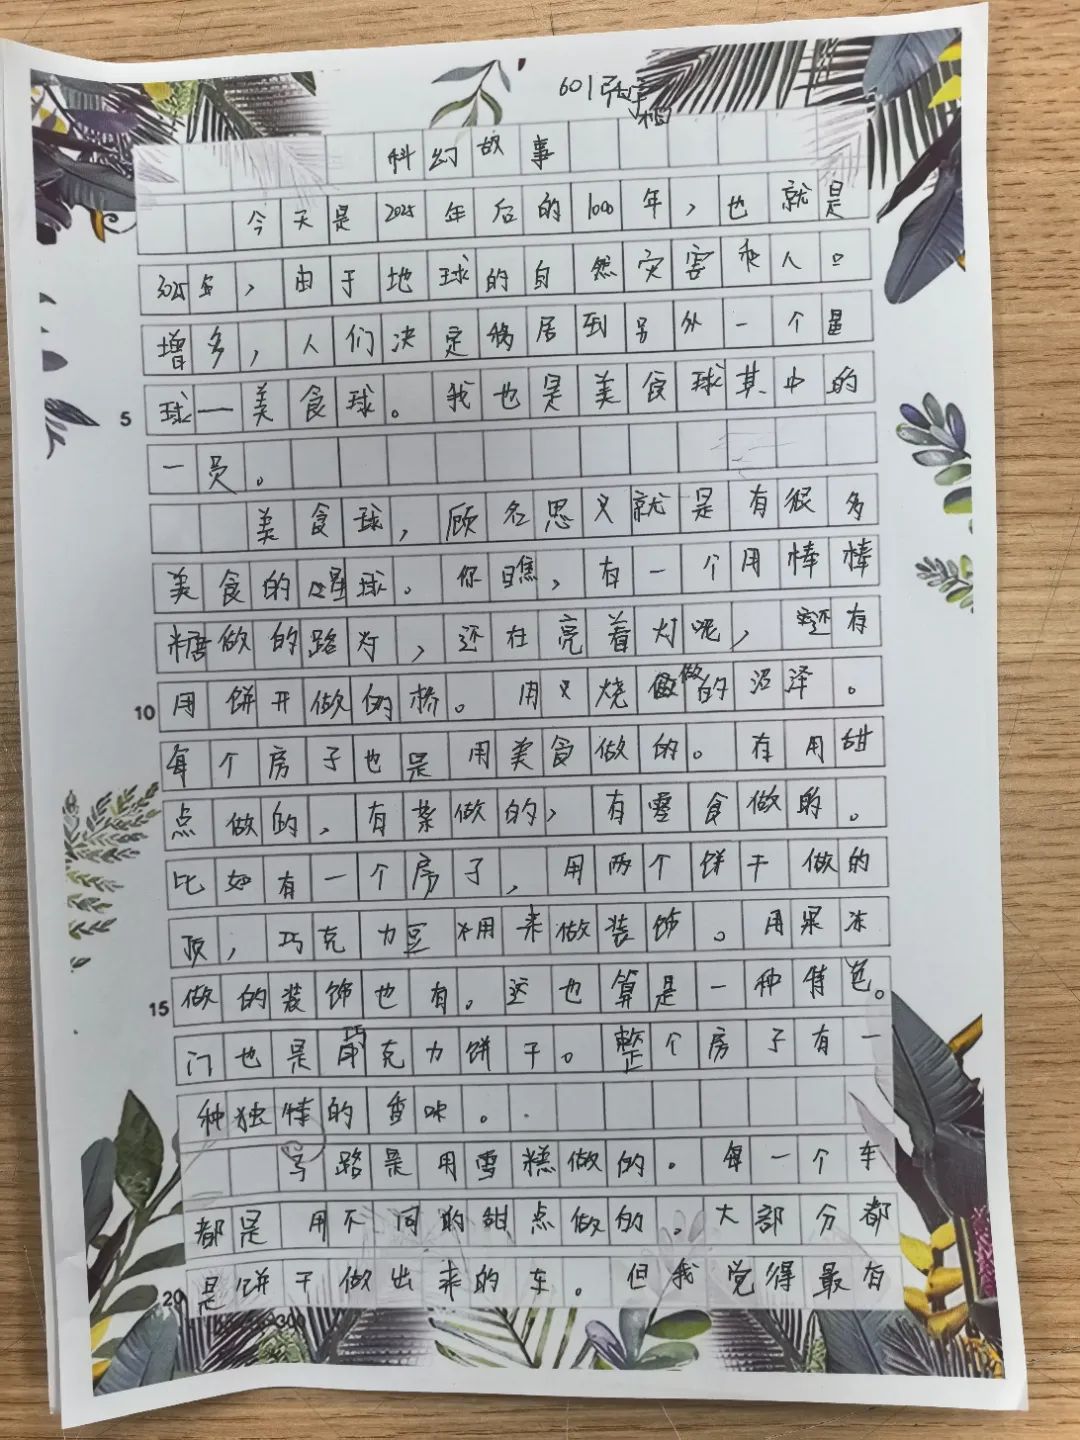 601张宇
科幻故事
今天是2025年后的1000年，也就是
3025年，由于地球的自然灾害和人口
增多，人们决定移居到另外一个星
球——美食球。我也是美食球其中的
一员。
美食球，顾名思义就是有很多
美食的星球。你瞧，有一个用棒棒
糖做的路灯，还在亮着灯呢，还有
用饼干做的桥。用叉烧做的沼泽。
每个房子也是用美食做的。有用甜
点做的，有菜做的，有零食做的。
比如有一个房子，用两个饼干做的
顶，巧克力豆用来做装饰。用果冻
做的装饰也有。这也算是一种特色。
门也是巧克力饼干。整个房子有一
种独特的香味。
马路是用雪糕做的。每一个车
都是用不同的甜点做的。大部分都
是饼干做出来的车。但我觉得最有
5
10
15
20